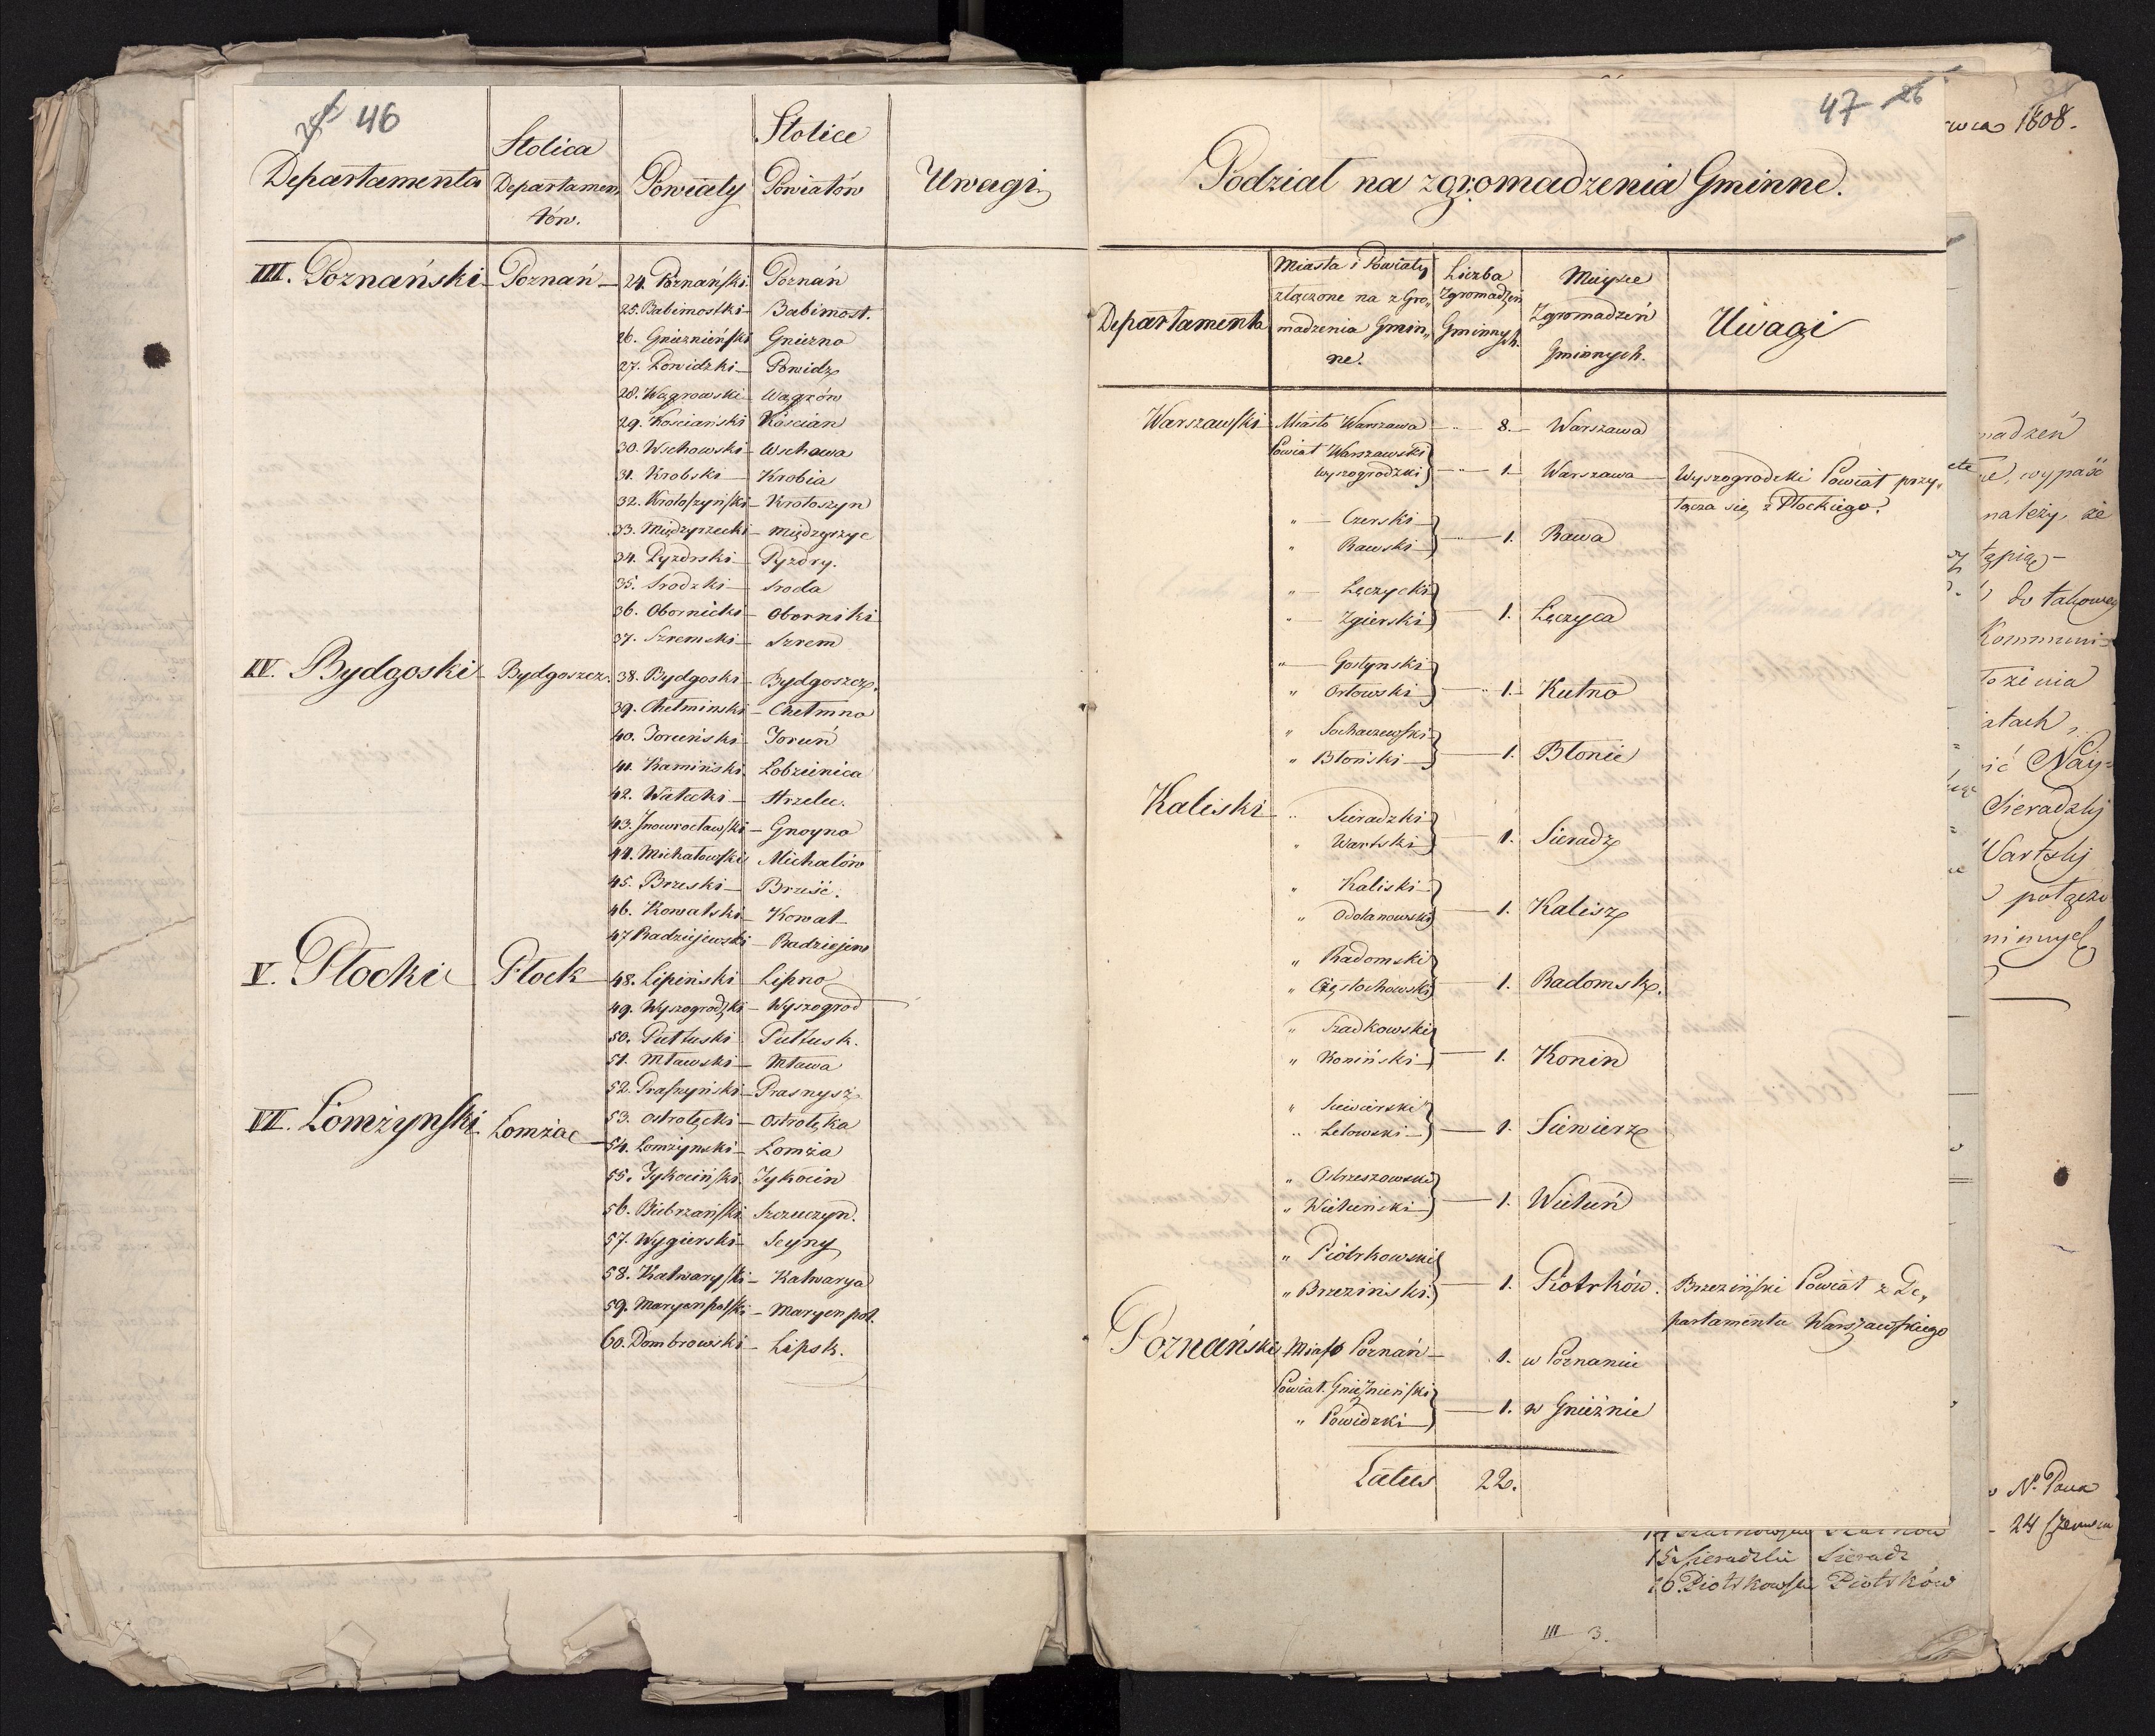 46
Departamenta
Stolica Departamen,
tów.
Powiaty
Stolice Powiatów
Uwagi
III. Poznański – Poznań – 24. Poznański Poznań
25. Babimostki – Babimost.
26. Gnieznieński Gniezno
27. Powidzki – Powidz
28. Wągrowski – Wągrów
29. Kościański Kościan
30. Wschowski – Wschowa
31. Krobski – Krobia
32. Krotoszyński – Krotoszyn
33. Międzyrzecki – Międzyrzyc
34. Pyzdrski – Pyzdry.
35. Srodzki – Sroda
36. Obornicki – Oborniki
37. Szremski – Szrem
IV. Bydgoski – Bydgoszcz. 38. Bydgoski – Bydgoszcz.
39. Chełminski – Chełmno
40. Toruński – Toruń
41. Kamiński Łobzienica
42. Wałecki – Strzelec.
43. Jnowrocławski – Gnoyno
44. Michałowski Michałów
45. Brzeski – Brześć.
46. Kowalski – Kowal
47 Radziejewski – Radziejew
V. Płocki Płock – 48. Lipiński Lipno
49. Wyszogrodzki – Wyszogrod
50. Pułtuski Pułtusk.
51. Mławski – Mława
52. Prasszyński – Prasnysz
53. Ostrołęcki – Ostrołęka
VI. Łomżynski Łomża – 54. Łomżynski – Łomża
55. Tykociński Tykocin
56. Biebrzański Szczuczyn.
57. Wygierski – Seyny
58. Kalwaryski – Kalwarya
59. Maryenpolski – Maryenpol.
60. Dombrowski – Lipsk.
47 26
Podział na zgromadzenia Gminne.
Departamenta
Miasta i Powiaty
złączone na zGro„
madzenia Gmin„
ne.
Liczba
Zgromadzeń
Gminnych.
Mieysce
Zgromadzeń
Gminnych.
Uwagi
Warszawski Miasto Warszawa – 8. – Warszawa
Powiat Warszawski
Wyszogrodzki – 1. Warszawa – Wyszogrodzki Powiat przy„
łącza się z Płockiego.
„ – Czerski –
„ Rawski – 1. Rawa
„ – Łęczycki
„ – Zgierski – 1. Łęczyca
„ – Gostynski
„ Orłowski – 1. – Kutno
„ Sochaczewski
„ Błoński – 1. Błonie
Kaliski – „ Sieradzki
„ Wartski – 1. Sieradz
„ Kaliski –
„ Odolanowski – 1. Kalisz
„ Radomski
„ Częstochowski – 1. Radomsk.
„ Szadkowski
„ Koniński – 1. Konin
„ Siewierski
„ Lelowski – 1. Siewierz
„ Ostrzeszowski
„ Wieluński – 1. Wieluń
„ Piotrkowski
„ Brzezinski. – 1. Piotrków. Brzeziński Powiat z De„
partamentu Warszawskiego
Poznański Miasto Poznań – 1. w Poznaniu
Powiat. Gnieznieński
„ Powidzki – 1. w Gnieźnie
Latus 22.
15 Sieradzki Sieradz
16. Piotrkowski Piotrków
III 3.
1808.
madzeń
wypaść
należy, że
do takowey
Kommuni=
łożenia
Nay=
Sieradzkiey
Wartskiey
24 Czerwca